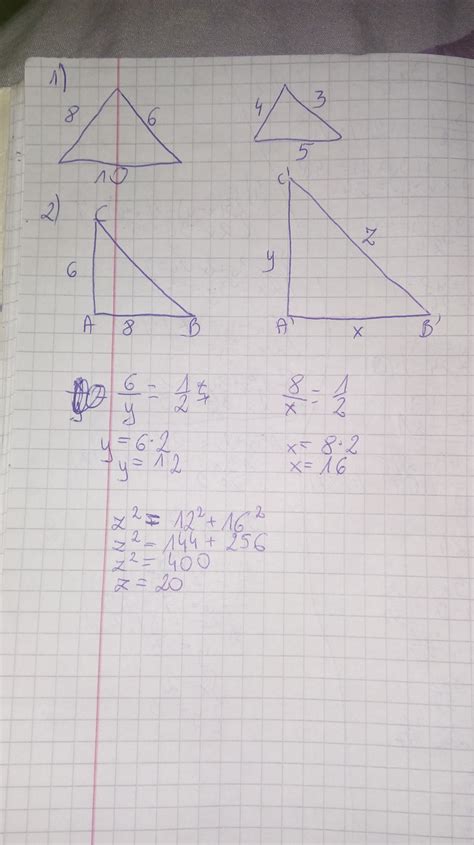 1)
8 6
10
4 3
5
2)
C
6
A 8 B
C'
y z
A' x B'
6/y = 1/2
y = 6·2
y = 12
8/x = 1/2
x = 8·2
x = 16
z² = 12² + 16²
z² = 144 + 256
z² = 400
z = 20